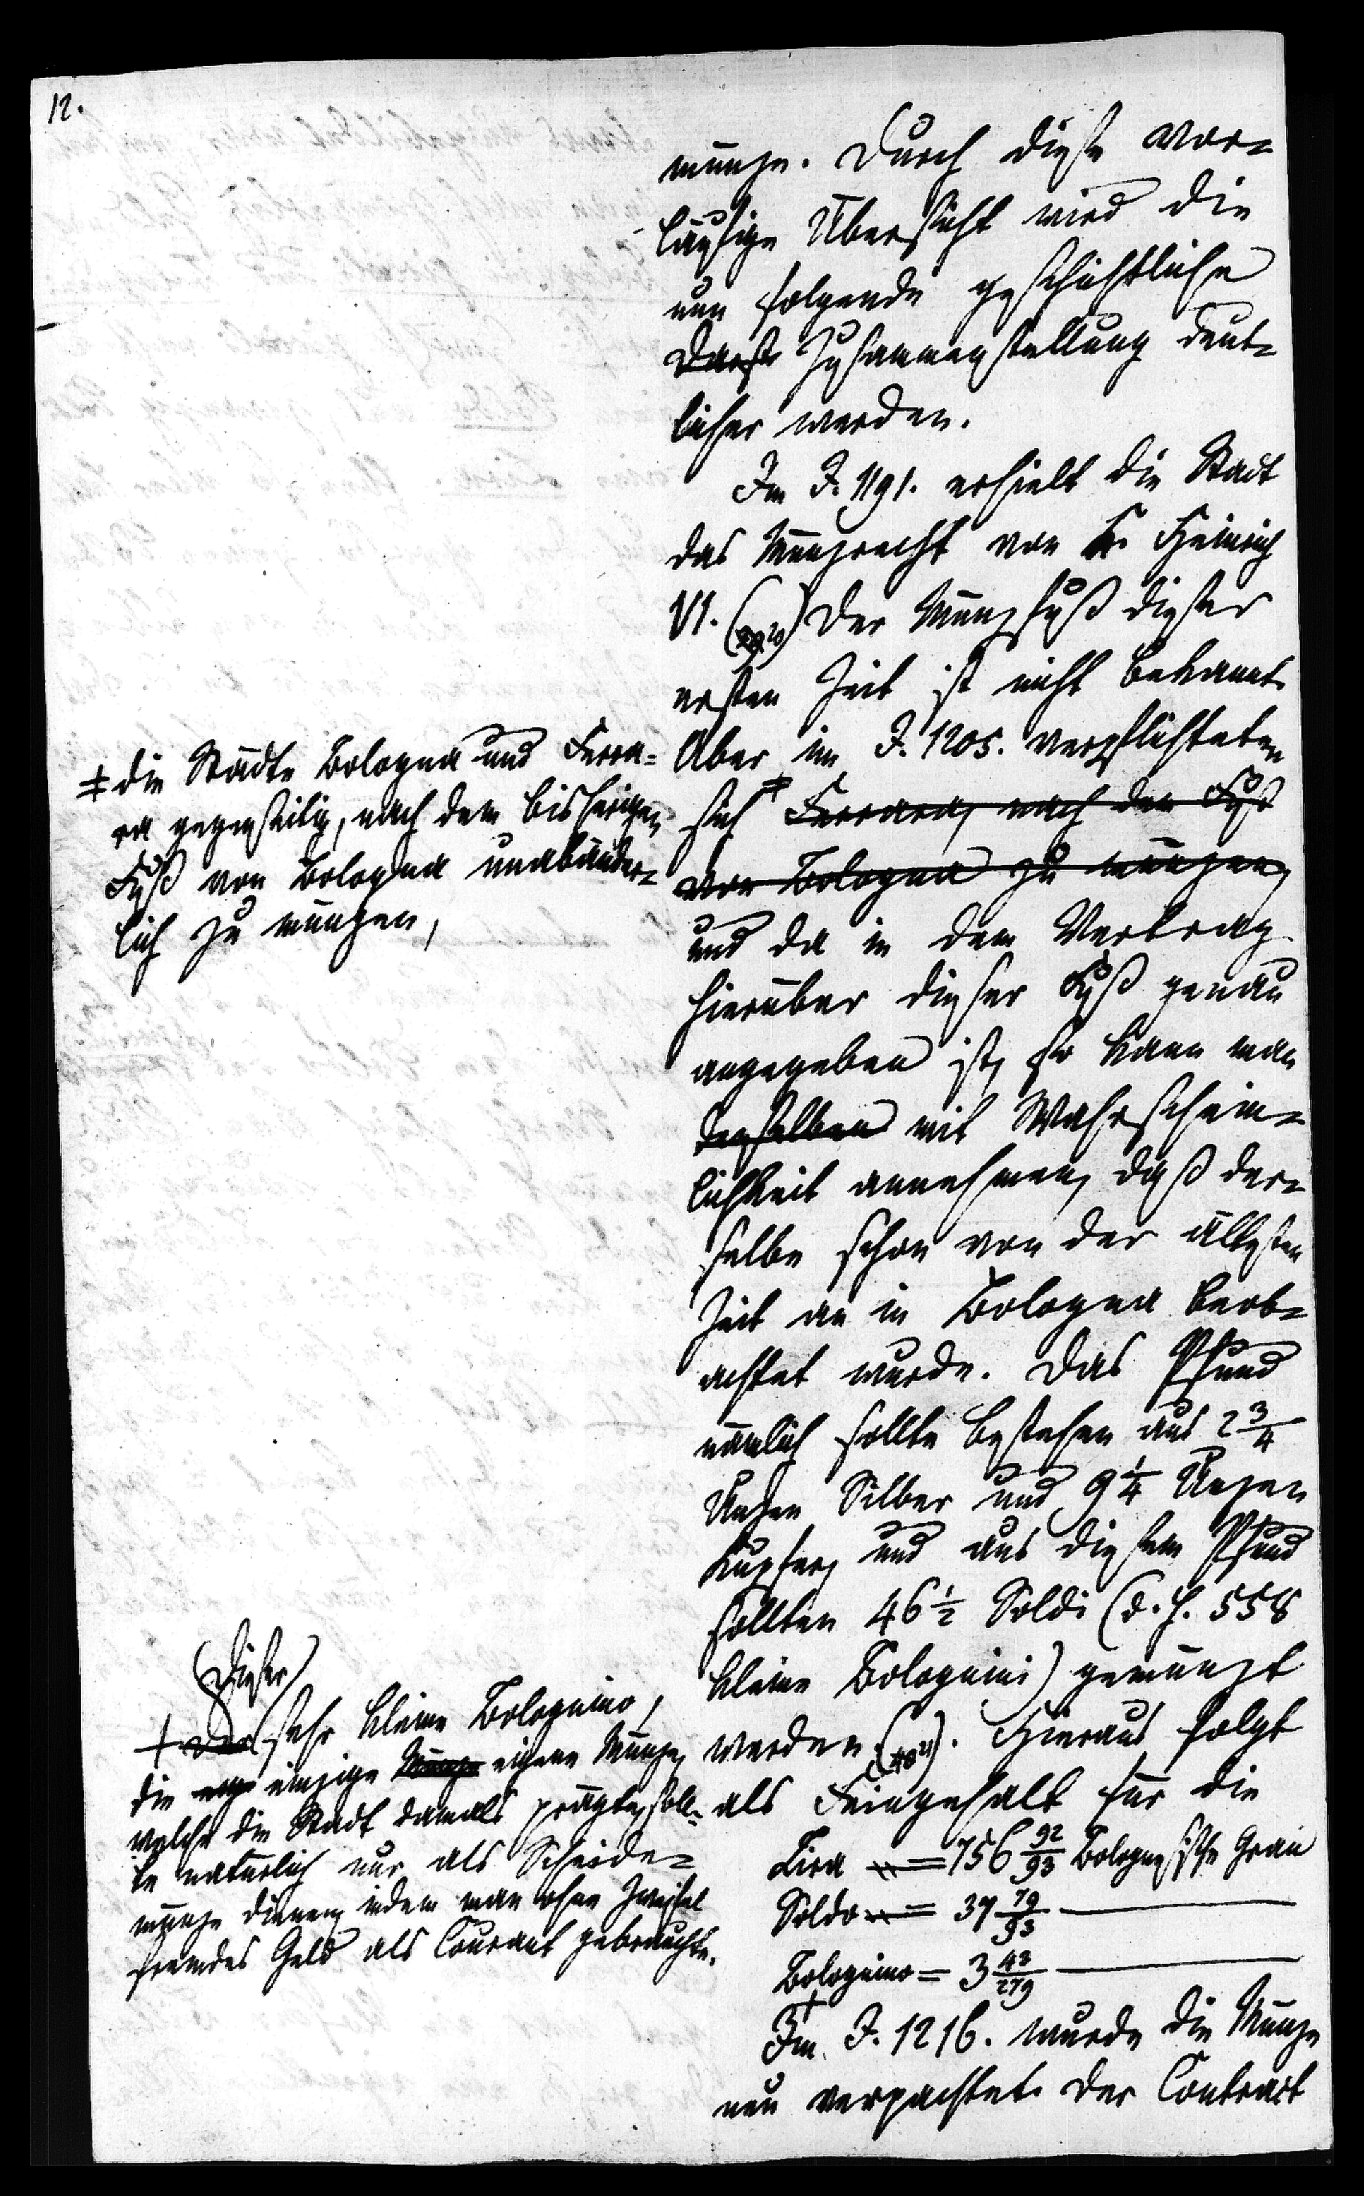 12.
münze. Durch diese vor-
läufige Übersicht wird die
nun folgende geschichtliche
Darst Zusammenstellung deut-
licher werden.
Im J. 1191. erhielt die Stadt
das Münzrecht von K. Heinrich
VI. (20) Der Münzfuß dieser
ersten Zeit ist nicht bekannt.
Aber im J. 1205. verpflichteten
sich ‡ Ferrara, nach dem Fuß
von Bologna zu münzen,
und da in dem Vertrag
hierüber dieser Fuß genau
angegeben ist, so kann man
denselben mit Wahrschein-
lichkeit annehmen, daß der-
selbe schon von der ältesten
Zeit an in Bologna beob-
achtet wurde. Das Pfund
nämlich sollte bestehen aus 2 3/4
Unzen Silber und 9 1/4 Unzen
Kupfer, und aus diesem Pfund
sollten 46 1/2 Soldi (d. h. 558
kleine Bolognini) gemünzt
werden. (21). Hieraus folgt
als Feingehalt für die
Lira = 756 92/93 Bolognesische Grän
Soldo = 37 79/93 ———
Bolognino = 3 43/279 ———
†
Im J. 1216. wurde die Münze
neu verpachtet. Der Contract
‡ die Städte Bologna und Ferra-
ra gegenseitig, nach dem bisherigen
Fuß von Bologna unabänder-
lich zu münzen,
Dieser
† Der sehr kleine Bolognino,
die einzige Münze eigene Münze,
welche die Stadt damals prägte, soll-
te natürlich nur als Scheide-
münze dienen, indem man ohne Zweifel
fremdes Geld als Courant gebrauchte.